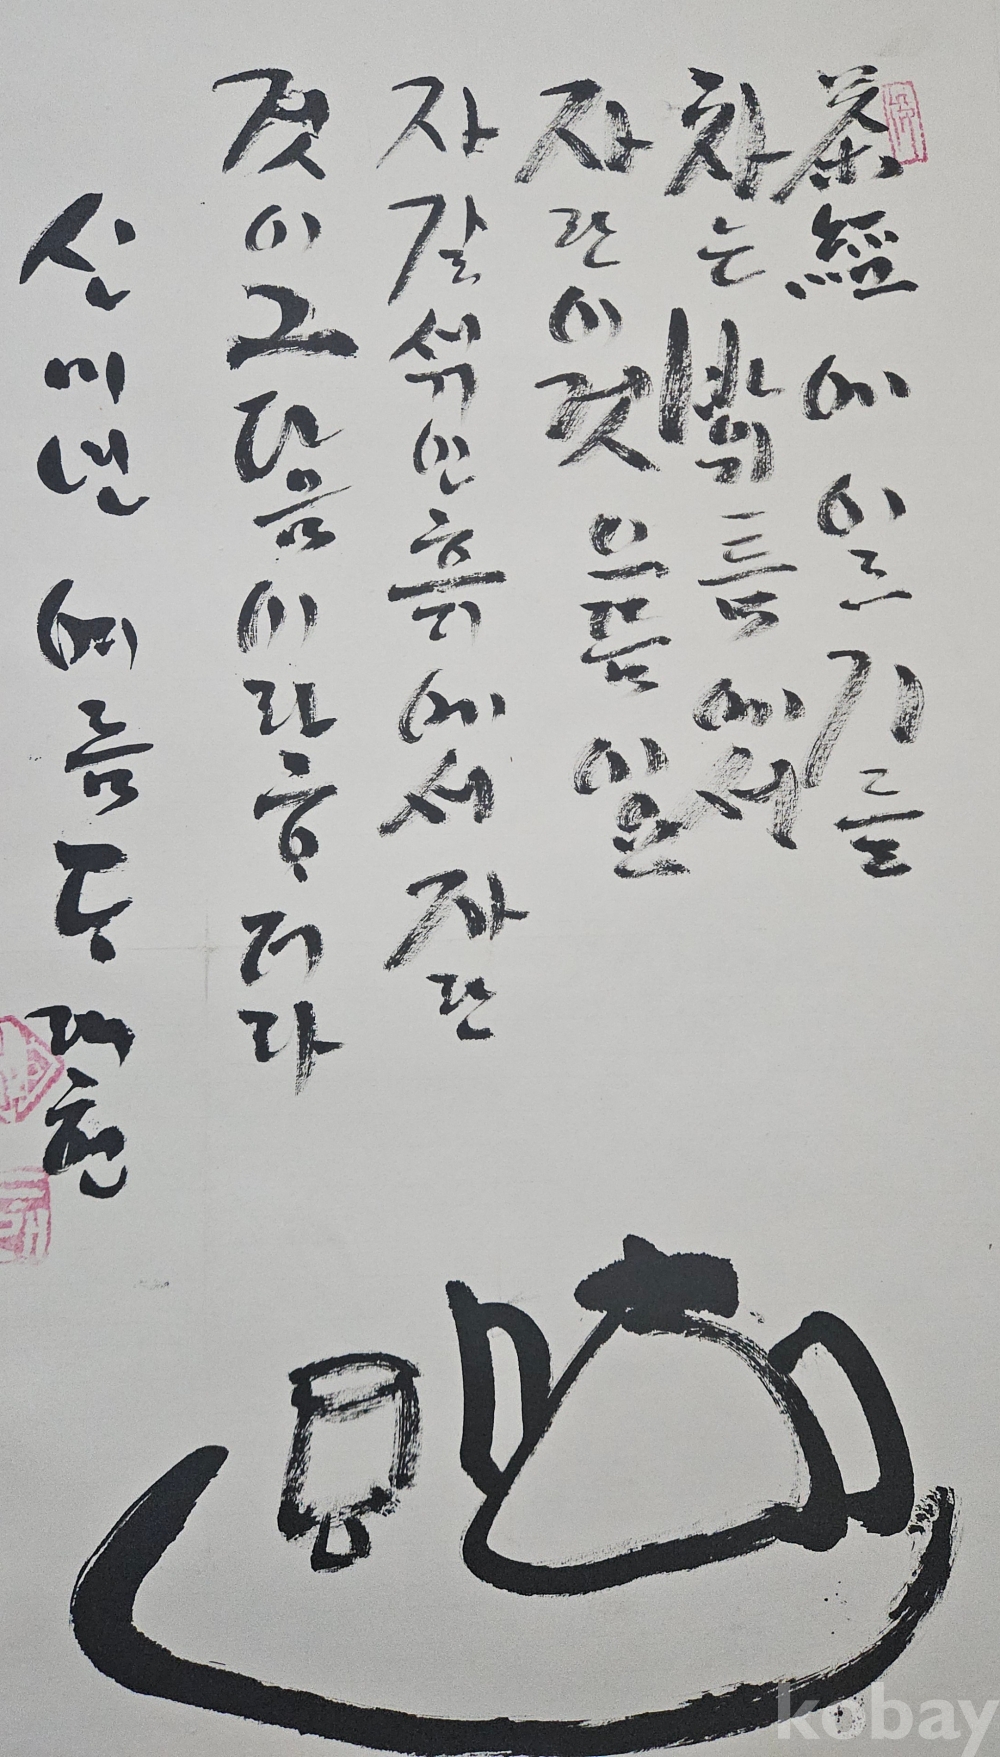 茶經에 이르기를
차는 바위틈에서
자란 이것 으뜸 이요
자갈 섞인 흙에서 자란
것이 그 다음이라 ᄒᆞ더라
신미년 여름 래헌
kobay